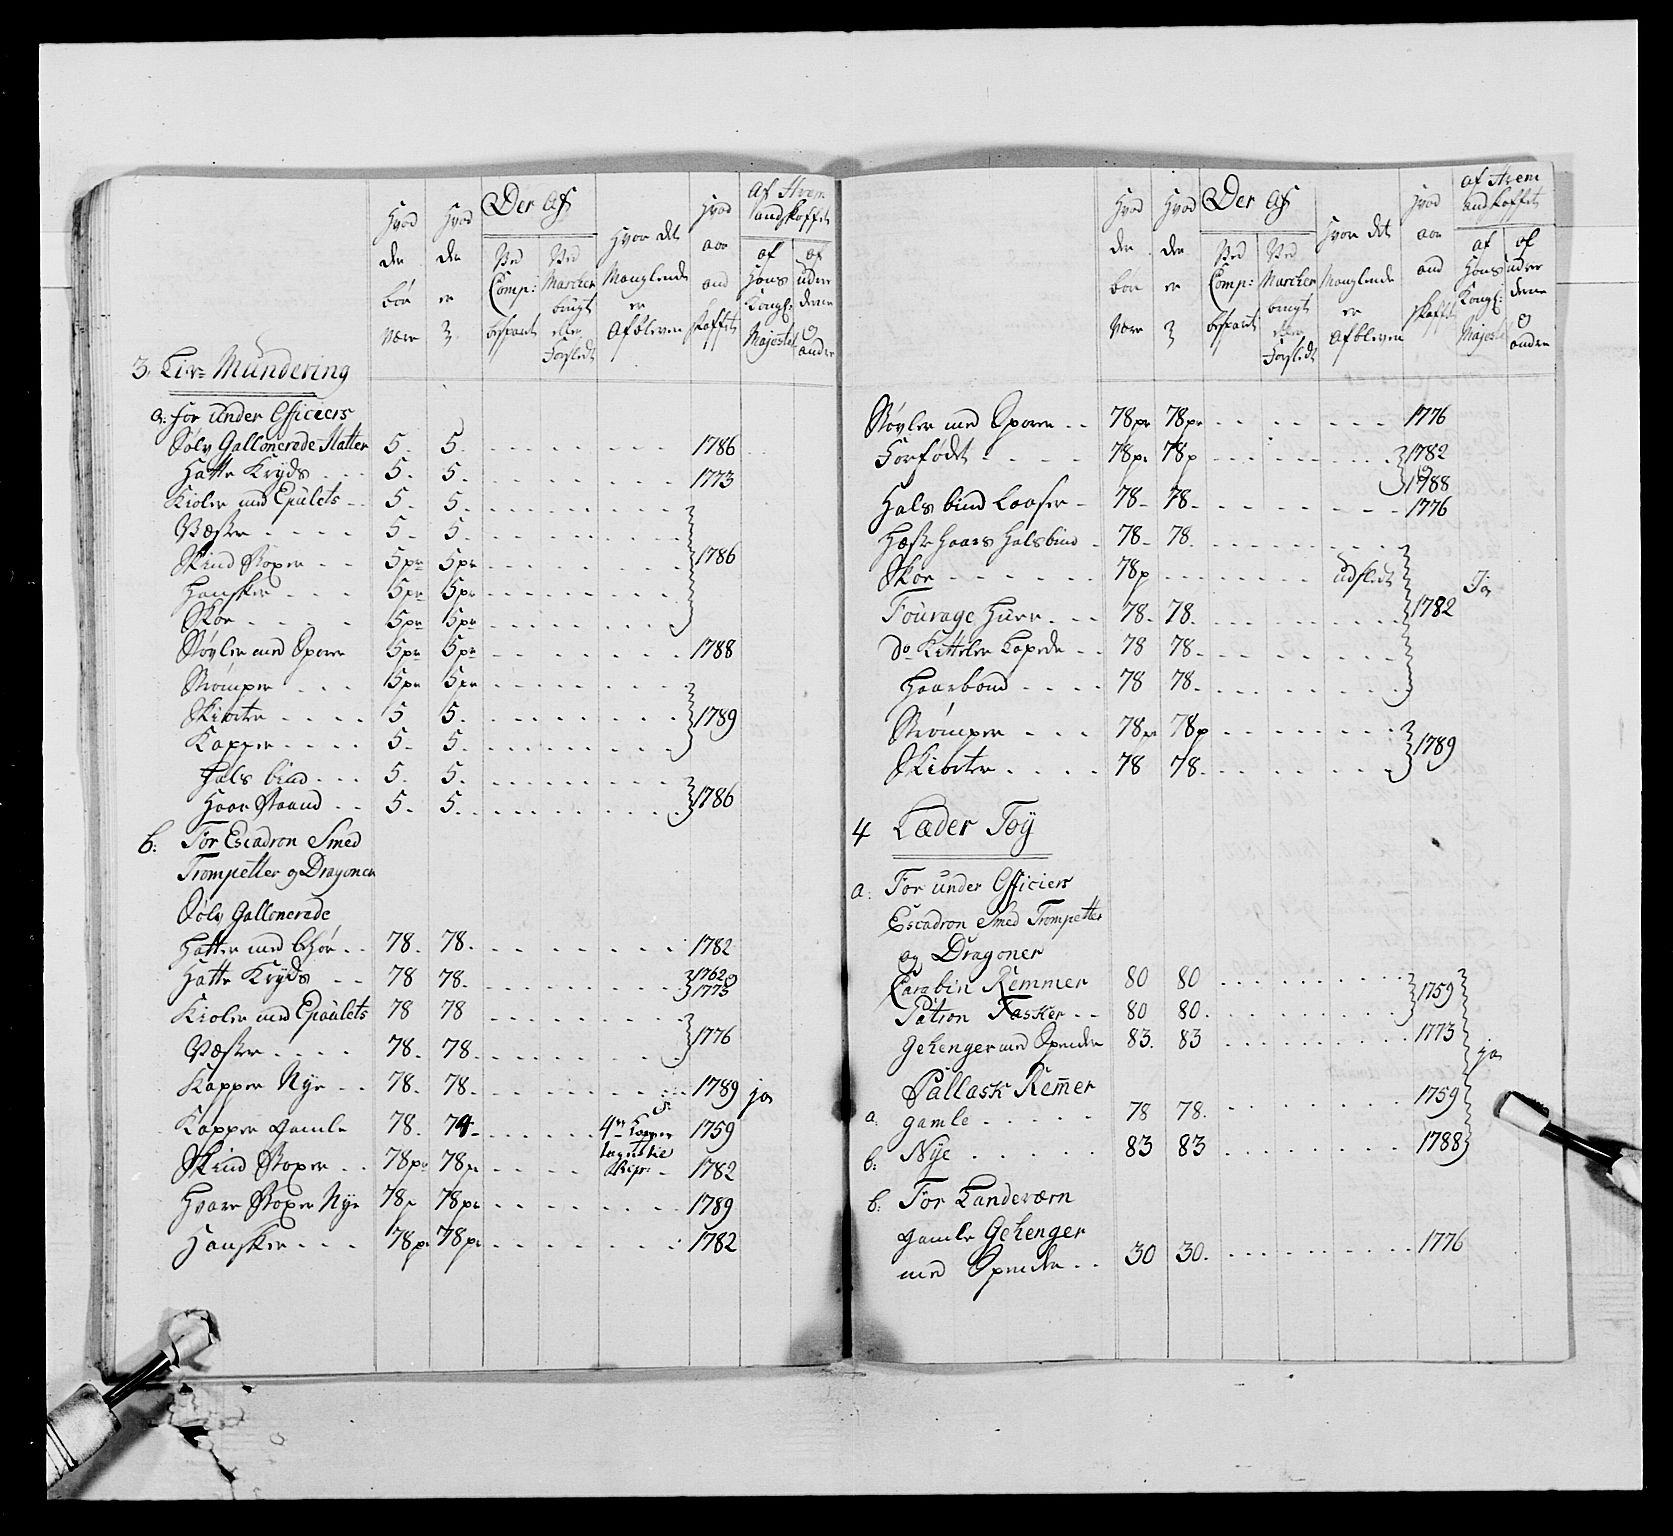 Hvad der bør være
Hvad der er
Der Af
Ved Comp: bespart
Ved Marcher brugt eller forsledt
Hvor det Manglende er Afbleven
Hvad aar and skaffet
Af Hvem andskaffet
af Hans Kongl: Majestet
af udrederne og andre
3. Liv= Mundering
a: for under Officiers
Sölv Gallonerede Hatter 5. 5. 1786
Hatte Kryds 5. 5. 1773
Kioler med Epulets 5. 5.
Væster 5. 5.
Skind Boxer 5pr 5pr 1786
Handsker 5pr 5pr
Skoe 5pr 5pr
Støvler med Sporer 5pr 5pr 1788
Strømper 5pr 5pr
Skiorter 5 5. 1789
Kapper 5. 5.
Hals bind 5. 5.
Haar Baand 5. 5. 1786
b: For Escadron Smed
Trompetter og Dragoner
Sölv Gallonerede
Hatter med bhör 78. 78. 1782
Hatte Kryds 78 78. 1762 og 1773
Kioler med Epaulets 78 78
Væster 78. 78. 1776
Kapper Nye 78. 78. 1789 ja
Kapper Gamle 78. 74. 4re Kapper 1759
Skind Boxer 78pr 78pr 1782
Hvare Boxer Nye 78p 78pr 1789
Handsker 78pr 78pr 1782
Hvad der bør være
Hvad der er
Der Af
Ved Comp: bespart
Ved Marcher brugt eller Forsledt
Hvor det Manglende er Afbleven
Hvad aar and skaffet
af Hvem andskaffet
af Hans Kongl: Majestet
af udrederne og andre
Støvler med Sporer 78pr 78pr 1776
Forfødt 78pr 78p 1782 og 1788
Hals bind Laaser 78. 78. 1776
Hæste Haars Halsbind 78. 78.
Skoe 78p udsledt Ja
Fourage Huer 78. 78. 1782
Do Kitteler 78 78.
Haarbond 78 78.
Strømper 78pr 78p
Skiorter 78 78. 1789
4 Læder Töÿ
a: For under Officiers
Escadron Smed Trompetter
og Dragoner
Carabin Remmer 80 80
Patron Tasker 80 80. 1759
Gehenger med Spender 83. 83 1773 ja
Pallask Remer
a. gamle 78 78. 1759
b: Nye 83 83 1788
b: For Landeværn
gamle Gehenger
med Spender 30 30. 1776